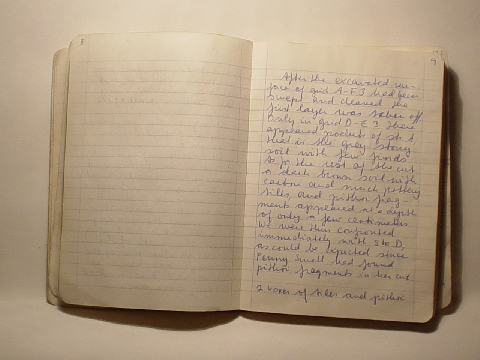 9
After the excavated sur-
face of grid A-F 3 had been
swept and cleaned the
first layer was taken off.
Only in grid D-E 3 there
appeared pockets of st. A,
that is the grey stony
soil with few finds.
As for the rest of the cut
a dark brown soil with
carbon and much pottery
tiles, and pithoi frag-
ments appeared at a depth
of only a few centimeters
We were thus confronted
immediately with st. D,
as could be expected since
Penny Small had found
pithoi fragments in her cut.
2 boxes of tiles and pithoi